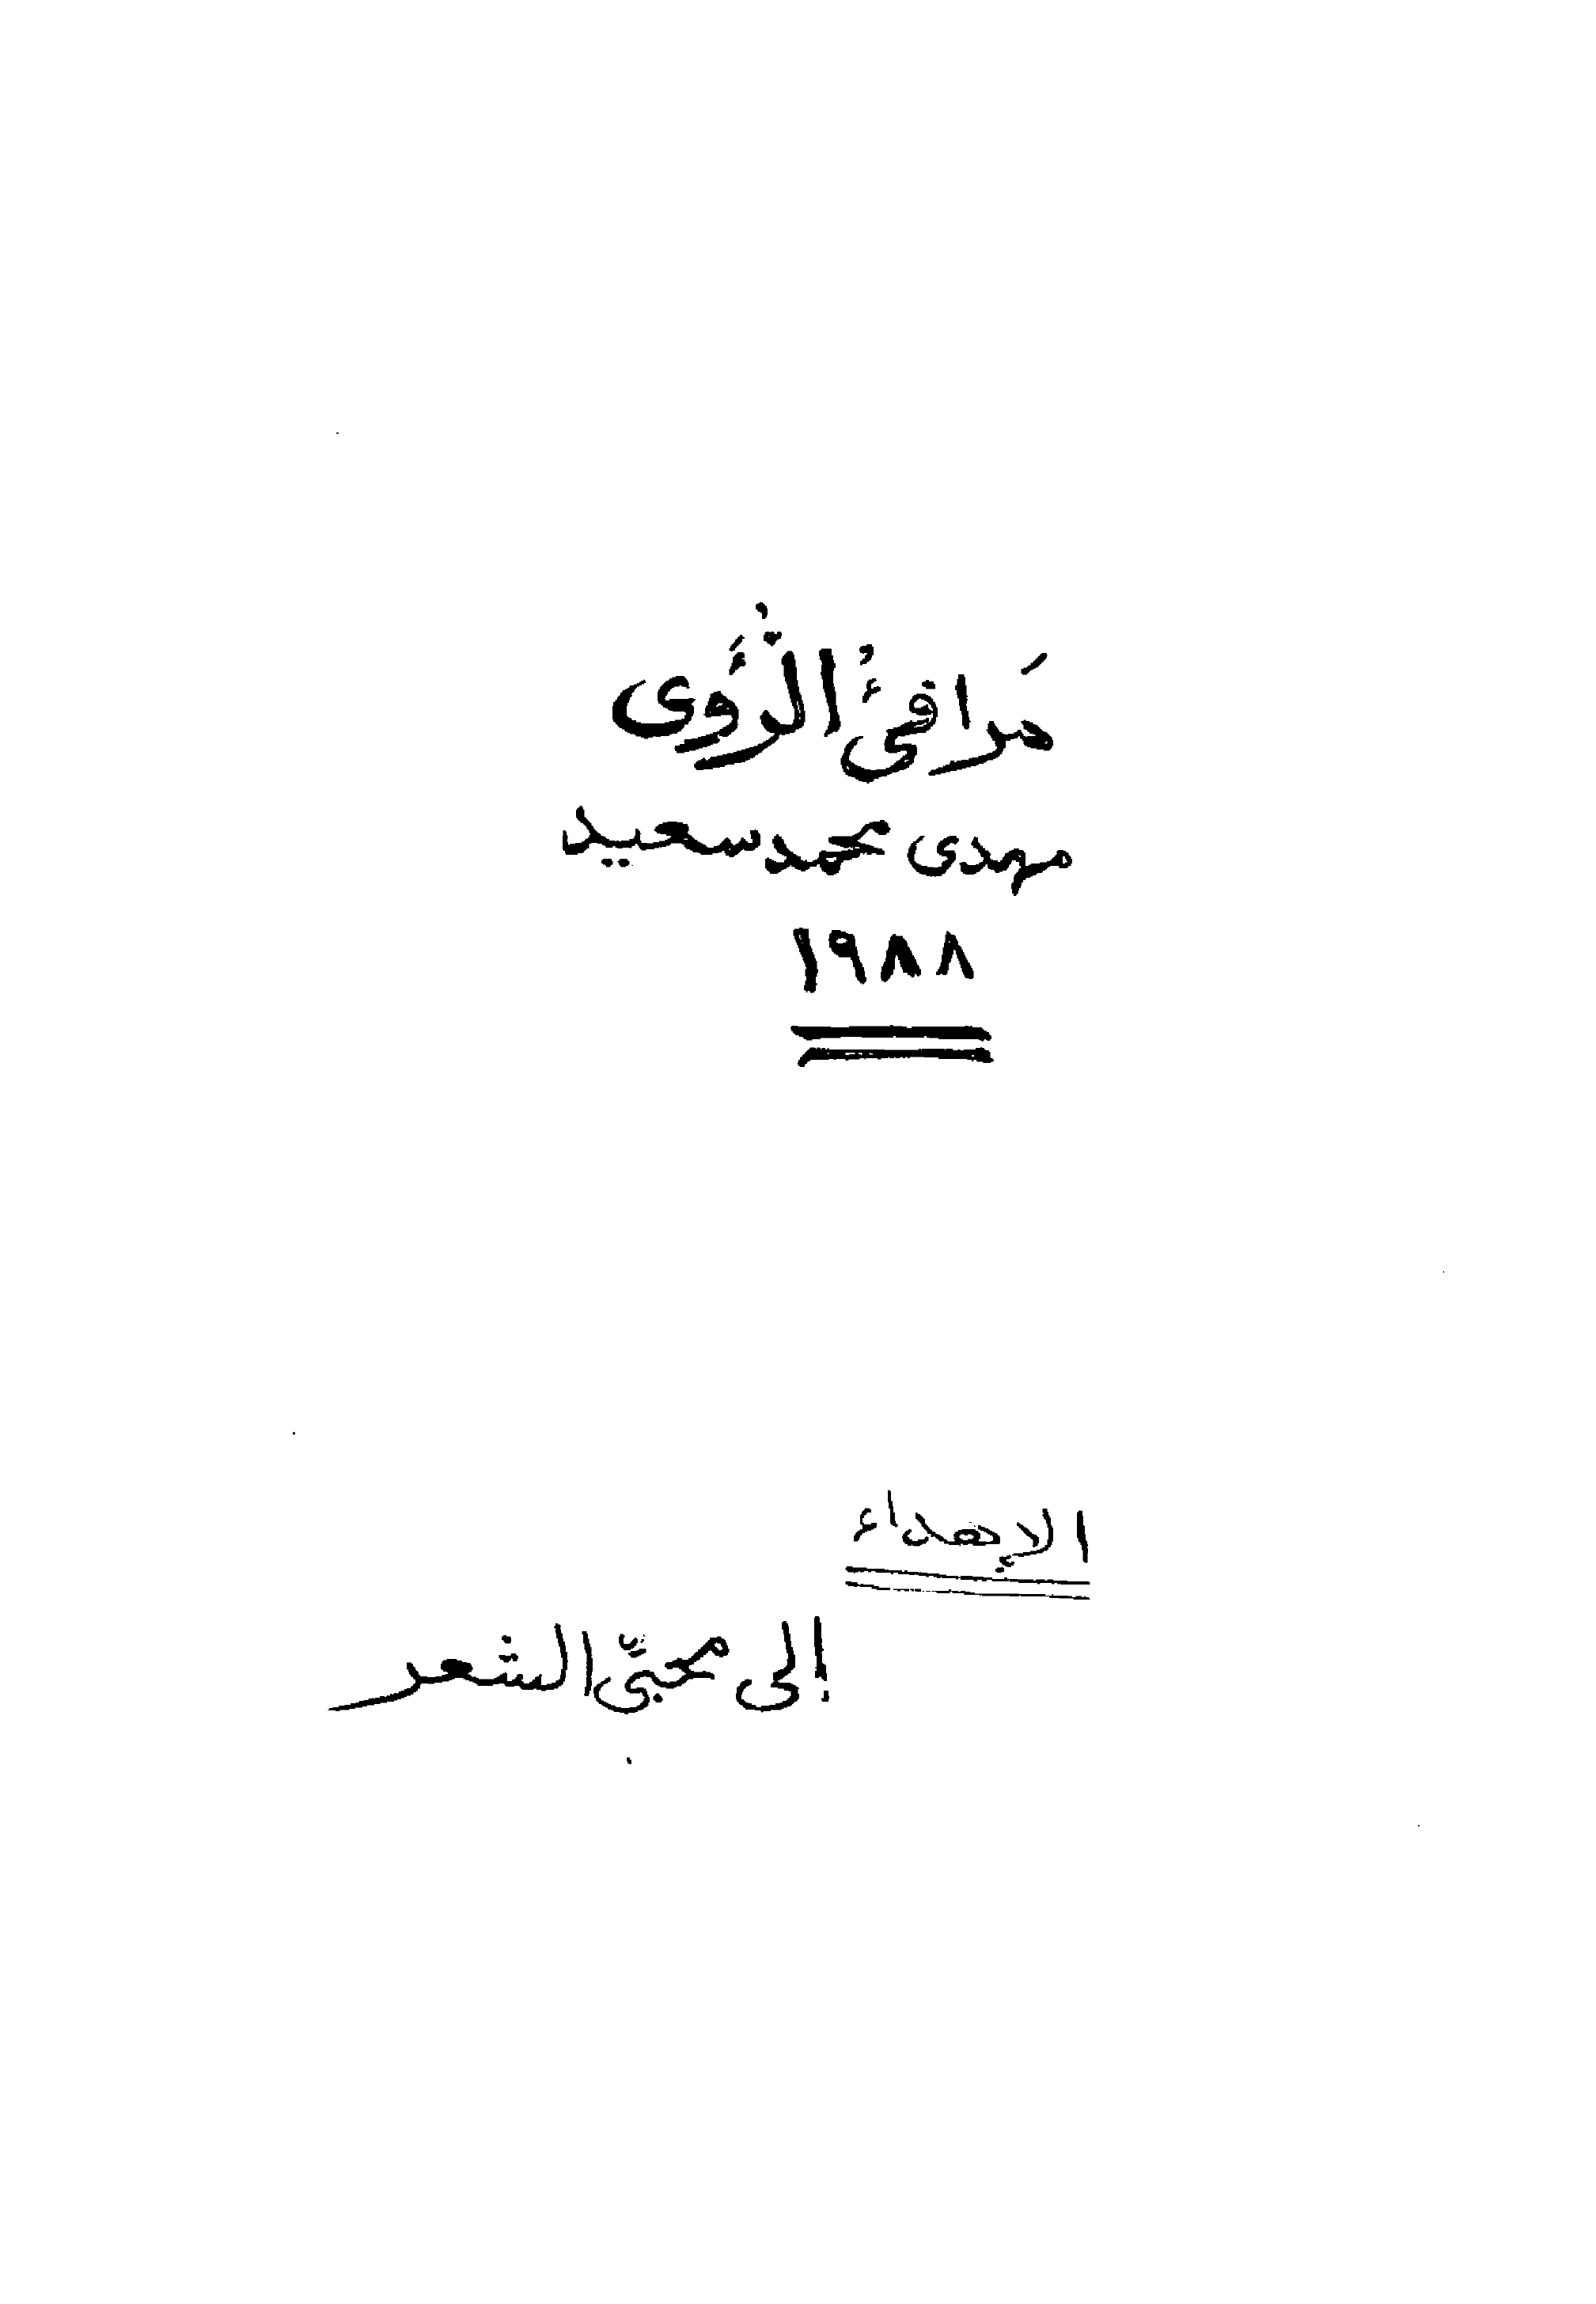 مَرافئُ الرُّؤَى
مهدى محمد سعيد
١٩٨٨
الإهداء
إلى محبّي الشعر